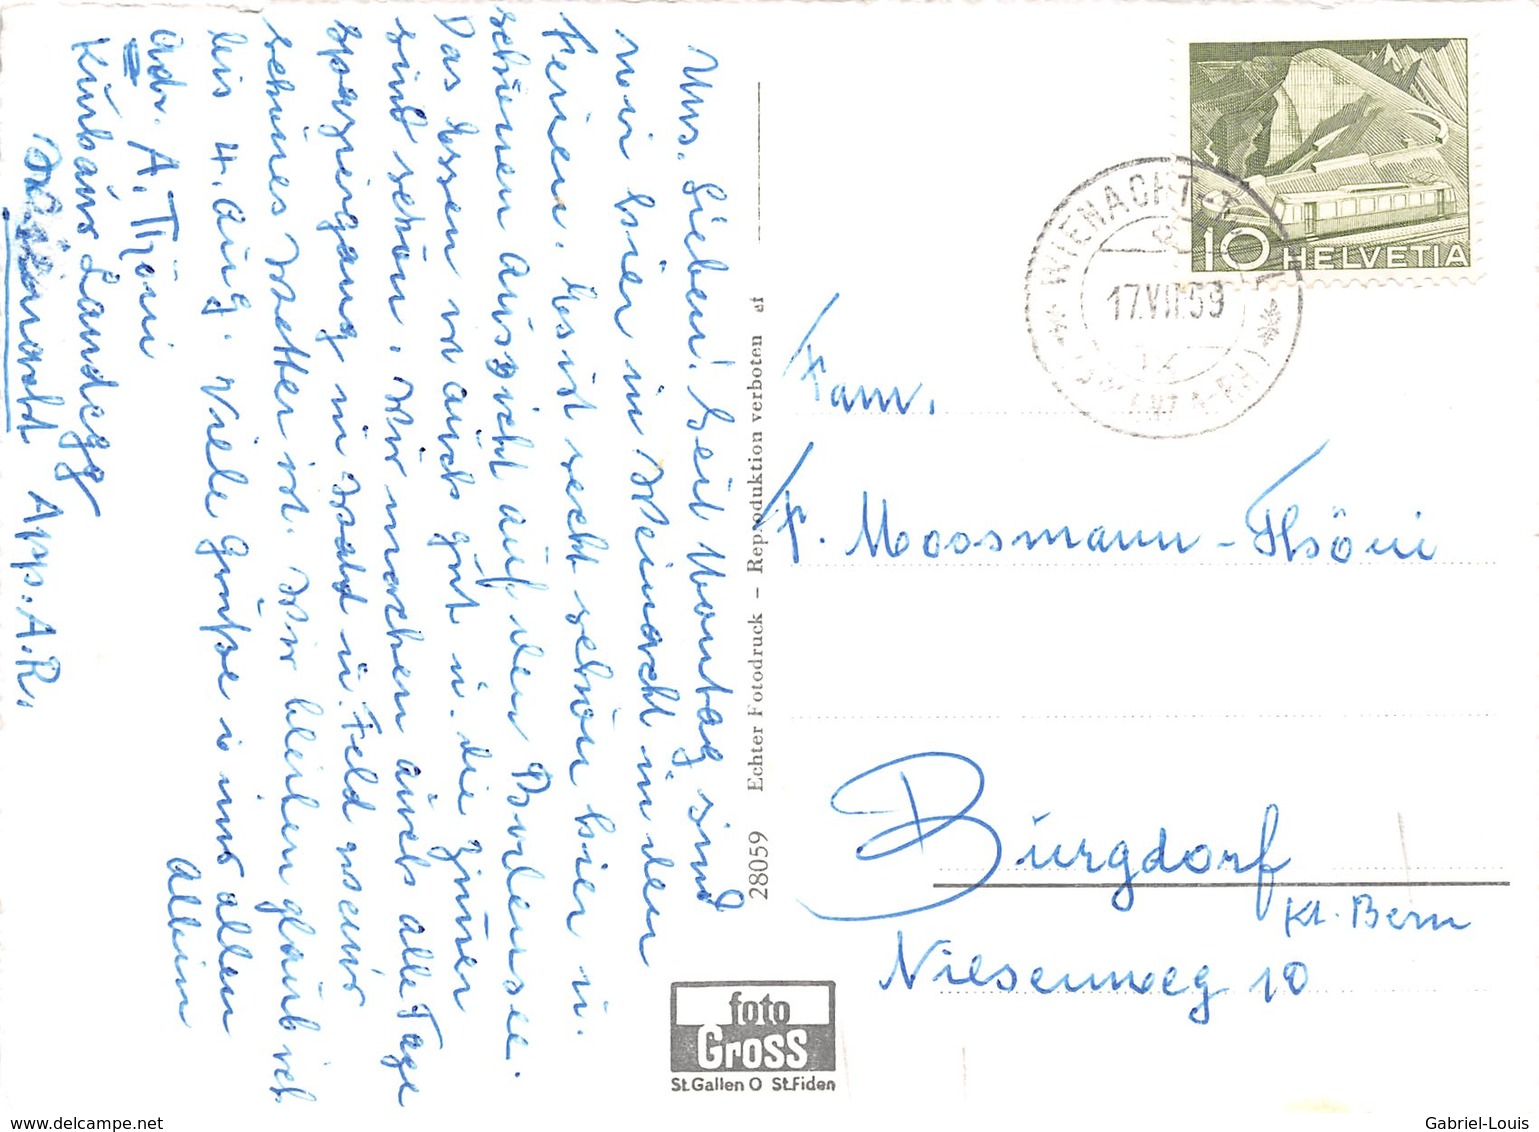 Uns. Lieben! Seit Montag sind
wir hier in Weinacht in den
Ferien. Es ist recht schön hier u.
schönen Aussicht auf den Bodensee.
Das Essen ist auch gut u. die Zimmer
sind schön. Wir machen auch alle Tage
Spaziergang in Wald u. Feld wenn
schönes Wetter ist. Wir bleiben glaub ich
bis 4. Aug. Viele Grüsse von allen
Albin
Adr. A. Thöni
Kurhaus Landegg
Weinacht App. A.R.
28059 Echter Fotodruck – Reproduktion verboten
foto
Gross
St.Gallen O St.Fiden
10 HELVETIA
WIENACHT
17.VII.59
Fam.
F. Moosmann-Thöni
Burgdorf
Kt. Bern
Niesenweg 10
Gabriel-Louis